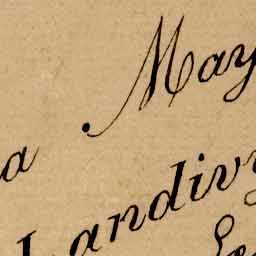 a May
Landiv